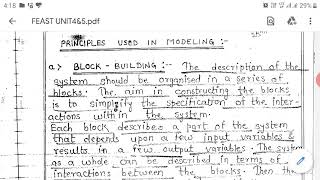 4:18
29%
FEAST UNIT4&5.pdf
PRINCIPLES USED IN MODELING :-
a.) BLOCK - BUILDING :- The description of the
system should be organised in a series of
blocks. The aim in constructing the blocks
is to simplify the specification of the inter-
actions within the system.
Each block describes a part of the system
that depends upon a few input variables &
results in a few output variables. The system
as a whole can be described in terms of
interactions between the blocks. Then the